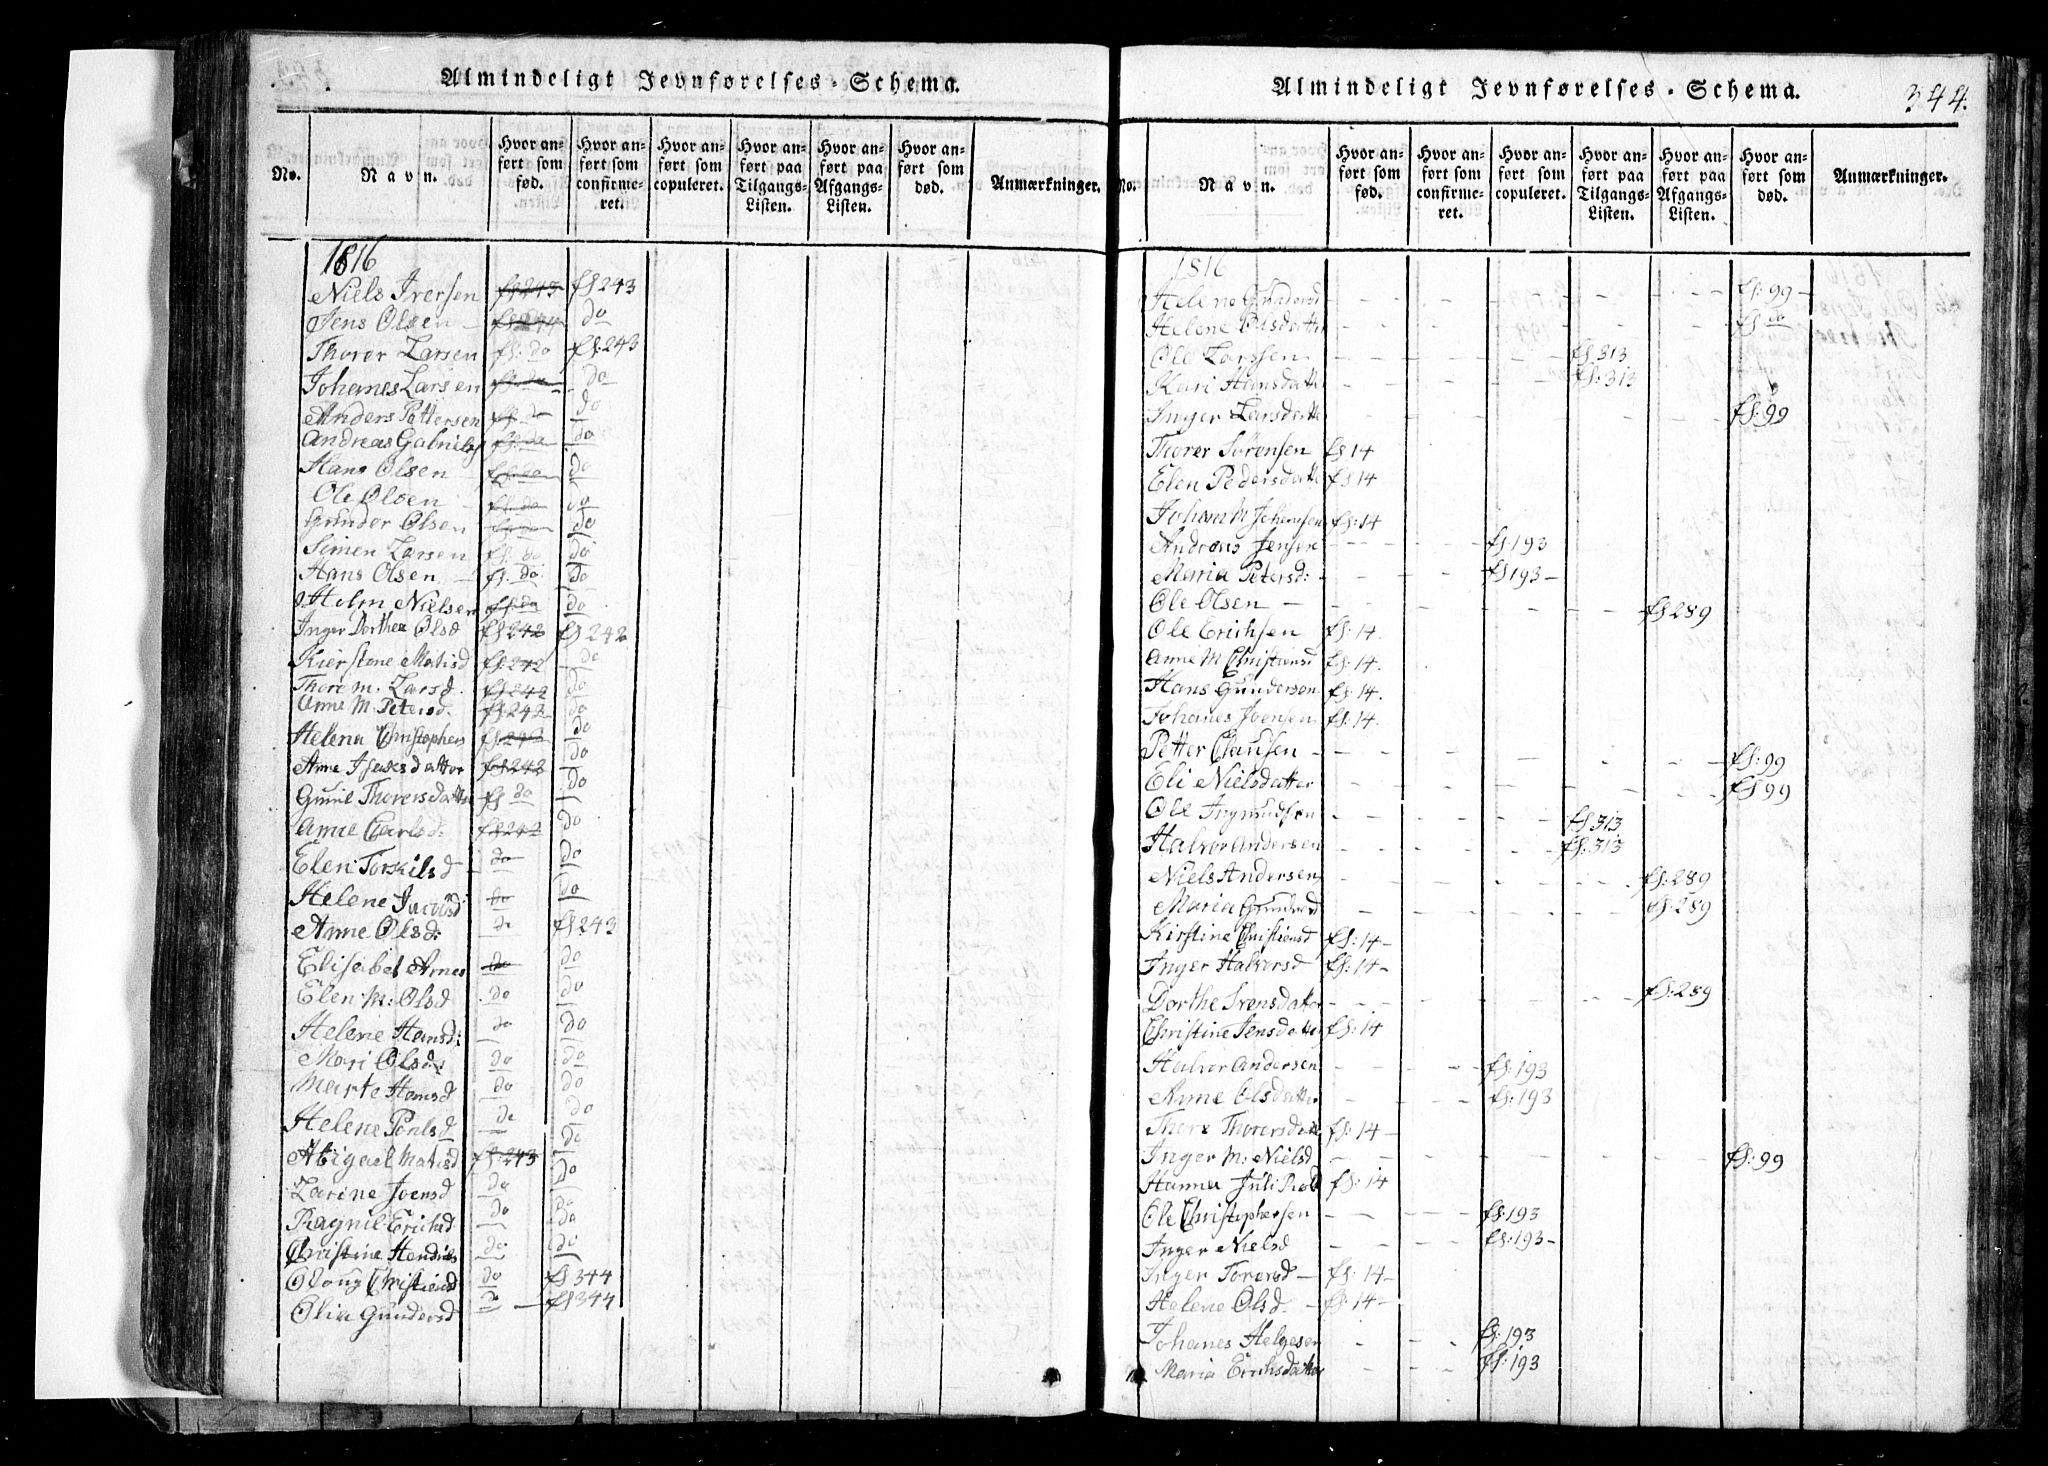 Almindeligt Jevnførelses-Schema.
No.
Navn.
Hvor anført som fød.
Hvor anført som confirmeret.
Hvor anført som copuleret.
Hvor anført paa Tilgangs-Listen.
Hvor anført paa Afgangs-Listen.
Hvor anført som død.
Anmærkninger.
1816
Niels Iversen fS 243 fS 243
Jens Olsen - do
Thorer Larsen fS. do fS. 243
Johanes Larsen fS. do do
Anders Pettersen fS. do do
Andreas fS. do do
Hans Olsen fS. do do
Ole Olsen fS. do do
Gunder Olsen fS. do do
Simen Larsen fS. do do
Hans Olsen - fS. do do
Holm Nielsen fS. do do
Inger Dorthea Olsd fS 242 fS 242
Kierstene Matisd fS. 242 do
Thore M. Larsd. fS 242 do
Anne M. Petersd. fS. 242 do
Helena Christophers fS. 242 do
Anne Isaksdatter fS 242 do
Gunil Thorersdatter fS do do
Anne Carlsd: fS 242 do
Elen Torkilsd - do do
Helene Jacobsd do do
Anne Olsd: do fS 243
Elisabet Arnes do do
Elen M: Olsd do do
Helene Hansd: do do
Mari Olsd: do do
Marte Hansd do do
Helene Povlsd do do
Abigael Matisd fS. 243 do
Larine Joensd do do
Ragnil Erichsd do do
Christine Hendrics do do
Oloug Christiensd do fS 344
Olia Gundersd do - fS 344
Almindeligt Jevnførelses-Schema.
344.
No.
Navn.
Hvor anført som fød.
Hvor anført som confirmeret.
Hvor anført som copuleret.
Hvor anført paa Tilgangs-Listen.
Hvor anført paa Afgangs-Listen.
Hvor anført som død.
Anmærkninger.
1816
Helene Gundersd fS. 99 -
Helene Olsdatter fS do
Ole Larssen fS 313
Kari Hansdatte fS: 313
Inger Larsdatte fS: 99
Thorer Sörensen fS 14
Elen Pedersdatte fS 14 -
Johan M. Johansen fS: 14
Andreas Jensen fS: 193
Maria Petersd: fS 193 -
Ole Olsen - fS 289
Ole Erichsen fS: 14.
Anne M Christiensd fS: 14.
Hans Gundersen fS: 14.
Johanes Joensen fS: 14.
Petter Clausen - fS: 99
Eli Nielsdatter fS 99
Ole Ingmundsen fS 313
Halvor Andersen fS. 313
Niels Andersen fS: 289
Maria Gundersd fS: 289
Kirstine Christiensd fS: 14 -
Inger Halvorsd fS: 14 -
Dorthe fS: 289
Christine Jensdatter fS: 14
Halvor Andersen fS: 193
Anne Olsdatter fS: 193
Thore Thorersdatte fS: 14 -
Inger M: Nielsd fS: 99
Hanna Juli fS: 14
Ole Christophersen fS: 193
Inger Nielsd fS: 193 -
Inger Torersd - fS: 14 -
Helene Olsd. - fS: 14 -
Johanes Helgesen fS. 193
Maria Erichsdatter fS: 193